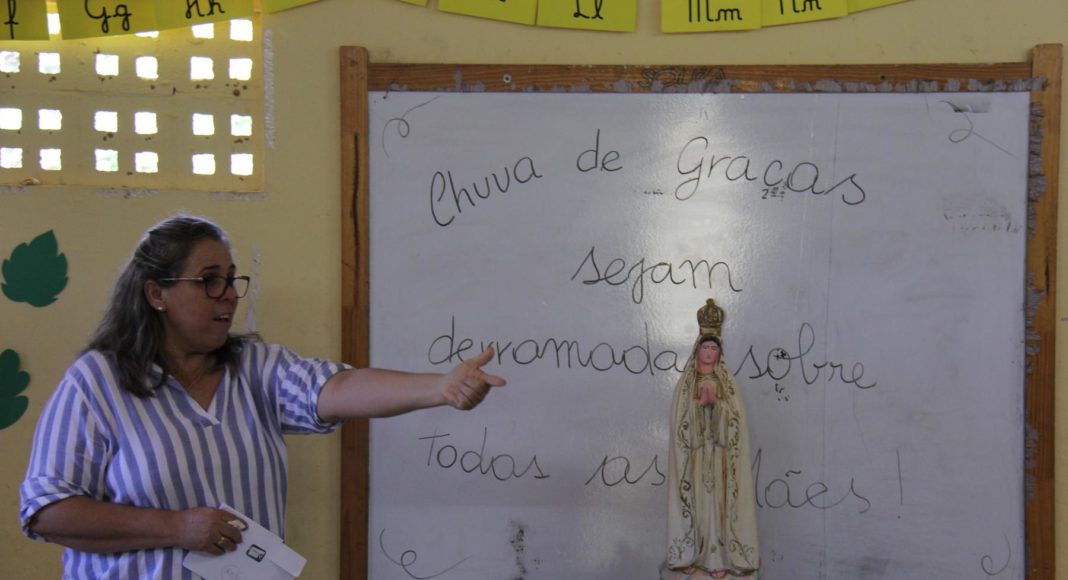 f Gg Hh Ll Mm Nn
Chuva de Graças
sejam
derramada sobre
Todas as Mães!